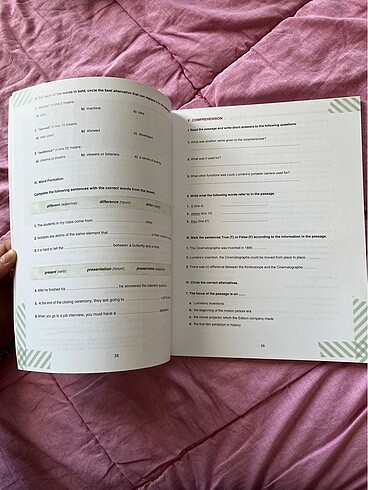 of the words in bold, circle the best alternative that
in line 2 means
a) b) machine c) idea
2. in line 15 means
a) b) showed c) developed
3. "audience" in line 20 means
a) cinema or theatre b) viewers or listeners c) a series of events
III. Word Formation
Complete the following sentences with the correct words from the boxes.
different (adjective) difference (noun) differ (verb)
1. The students in my class come from
2. Isotopes are atoms of the same element that
3. It is hard to tell the between a butterfly and a moth.
present (verb) presentation (noun) presentable (adjective)
4. After he finished his , he answered the listeners'
5. At the end of the closing ceremony, they are going to
6. When you go to a job interview, you must have a
38
F. COMPREHENSION
I. Read the passage and write short answers to the following questions.
1. What was another name given to the kinetoscope?
2. What was it used for?
3. What other functions did Louis Lumière's portable camera have?
II. Write what the following words refer to in the passage.
1. it (line 4)
2. where (line 10)
3. they (line 21)
III. Mark the sentences True (T) or False (F) according to the information in the passage.
1. The Cinematographe was invented in 1895.
2. Lumière's invention, the Cinematographe could be moved from place to place.
3. There was no difference between the Kinetoscope and the Cinematographe.
IV. Circle the correct alternatives.
1. The focus of the passage is on
a. Lumière's inventions
b. the beginning of the motion picture era
c. the movie projector which the Edison company made
d. the first film exhibition in history
39